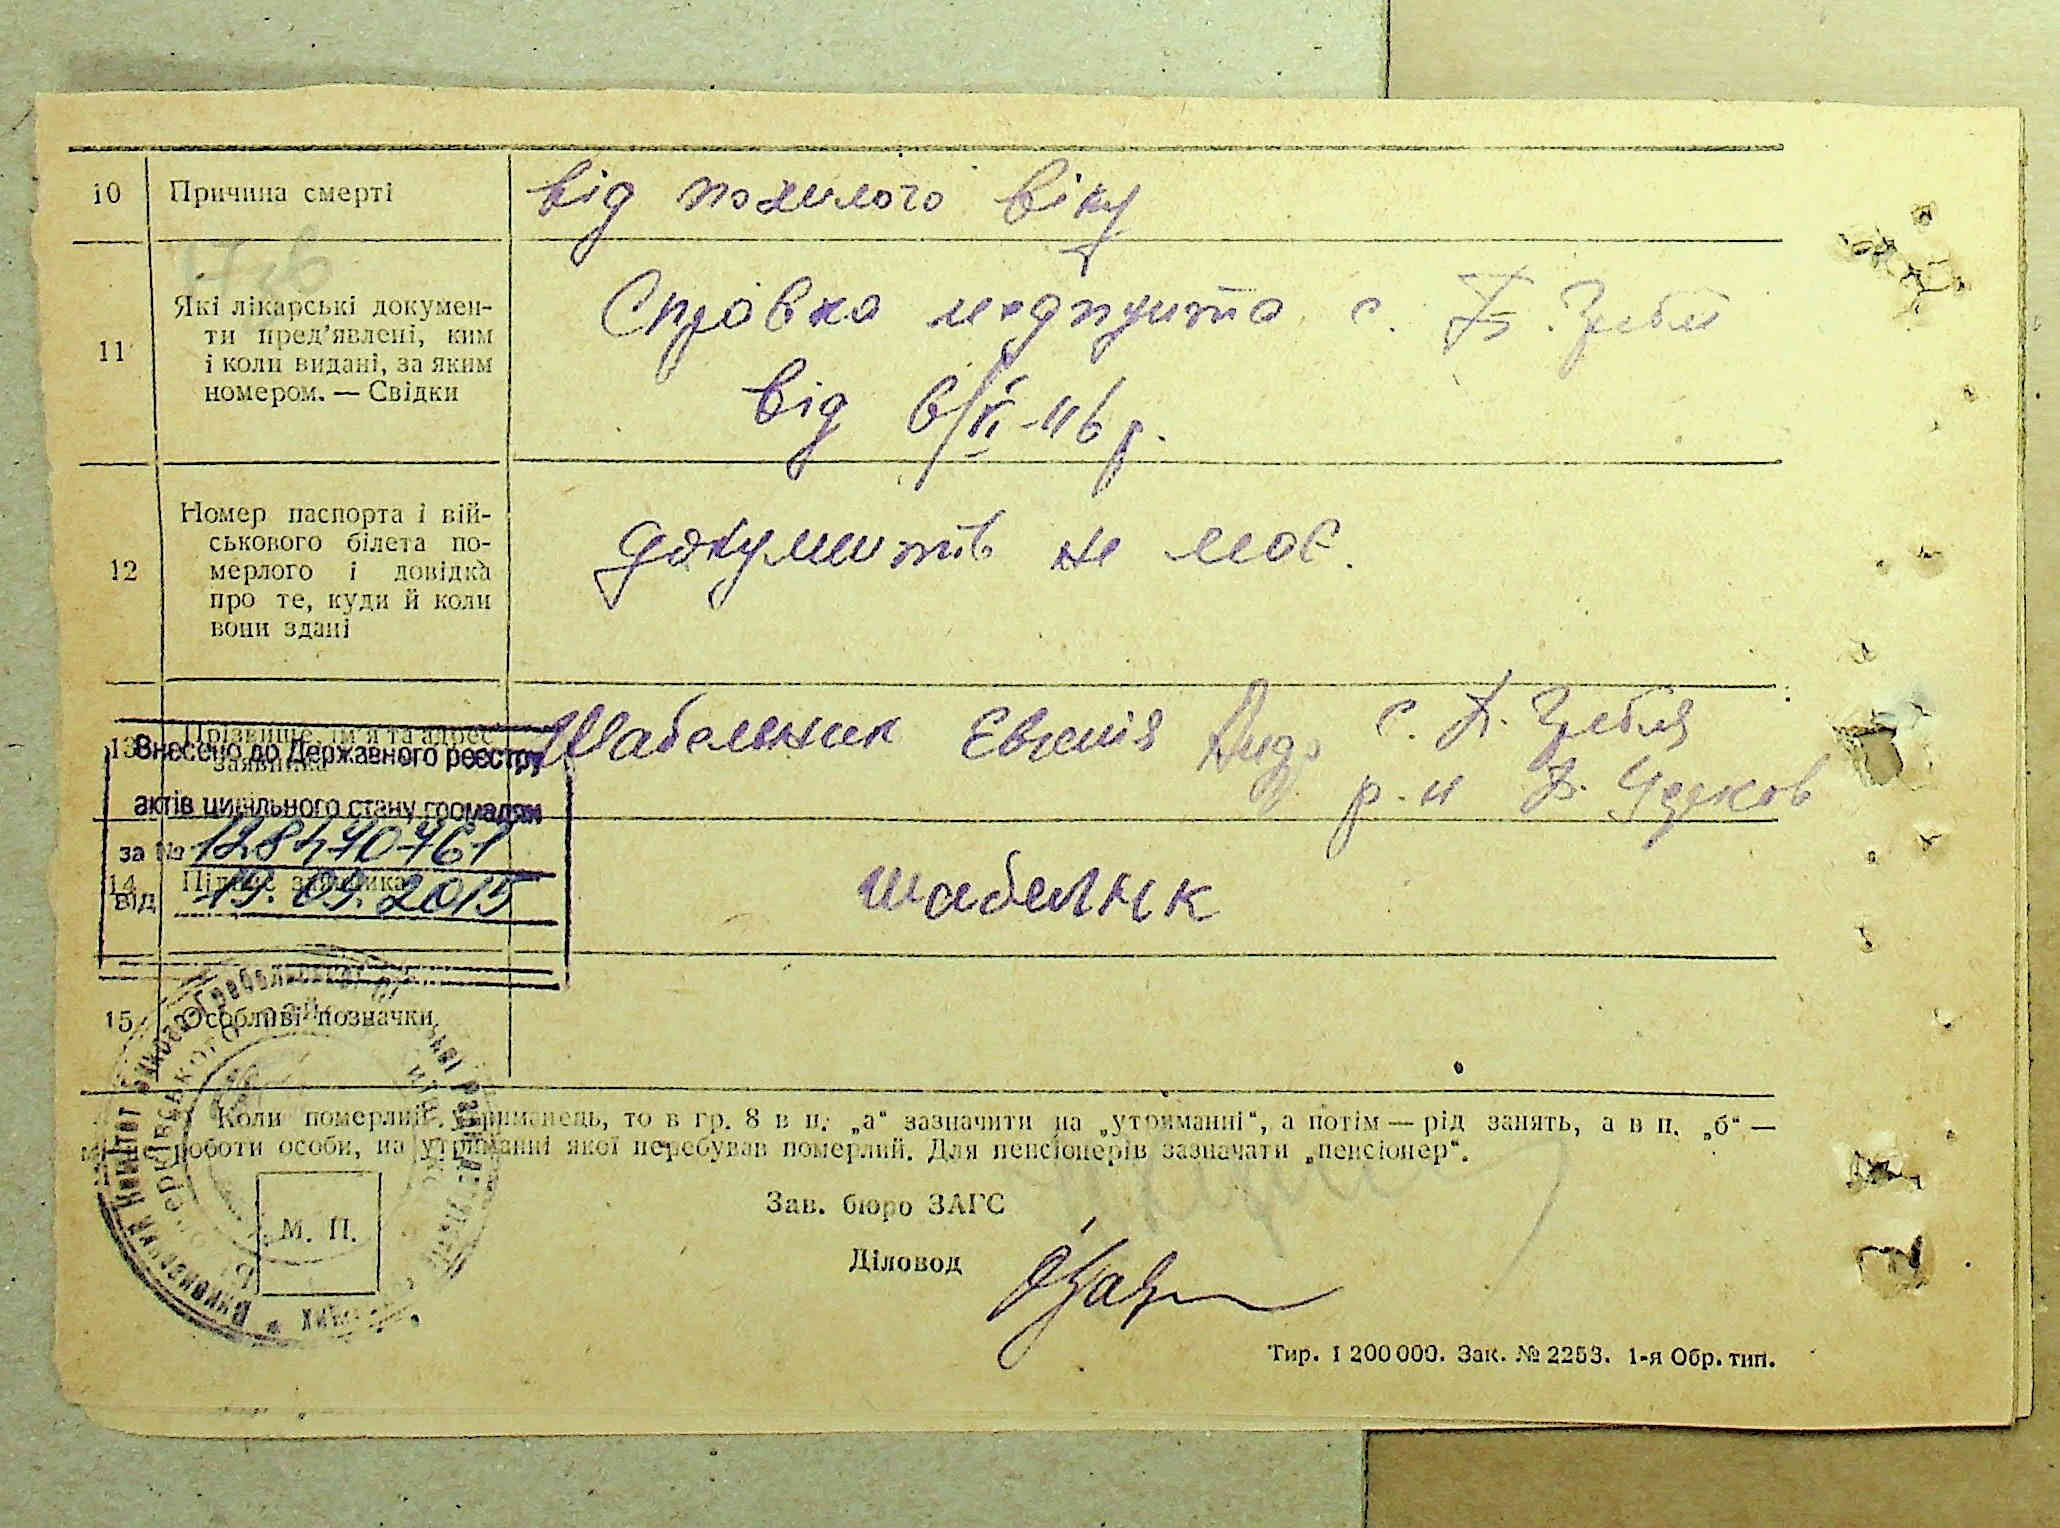 10 Причина смерті від похилого віку
11 Які лікарські докумен-
ти пред'явлені, ким
і коли видані, за яким
номером. — Свідки
Справка медпункта с. Б. Гребля
від 6/VI-46 р.
12 Номер паспорта і вій-
ськового білета по-
мерлого і довідка
про те, куди й коли
вони здані
документів не має.
13 Прізвище, ім'я та адрес
заявника
Шабельник Евгенія с. Б. Гребля
р-н Б. Церков
Внесено до Державного реєстру
актів цивільного стану громадян
за № 128470761
від 19.09.2015
14 Підпис заявника
шабелник
15 Особливі позначки
Коли померлий утриманець, то в гр. 8 в п. „а“ зазначити на „утриманні“, а потім — рід занять, а в п. „б“ —
місце роботи особи, на утриманні якої перебував померлий. Для пенсіонерів зазначати „пенсіонер“.
Зав. бюро ЗАГС
М. П.
Діловод
Тир. 1 200 000. Зак. № 2253. 1-я Обр. тип.